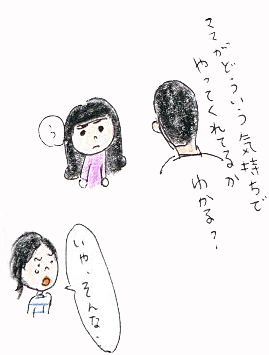 ママがどういう気持ちで
やってくれてるか
わかる?
う
いや、そんな..